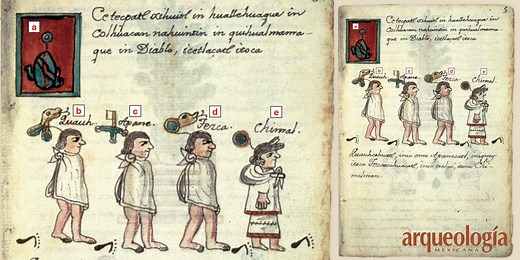 a
Cetecpatl xihuitl in huallehuaque in
Colhuacan nahuintin in quihualmama
que in Diablo, icetlacatl itoca
b c d e
Quauh. Apane. Tezca. Chimal.
5
a
Cetecpatl xihuitl in huallehuaque in
Colhuacan nahuintin in quihualmama
que in Diablo, icetlacatl itoca
b c d e
Quauh. Apane. Tezca. Chimal.
Quauhcohuatl, inic ome Apanecatl, iniquey
itoca Tezcacohuacatl, inic nahui itoca Chi
malman.
arqueología
MEXICANA